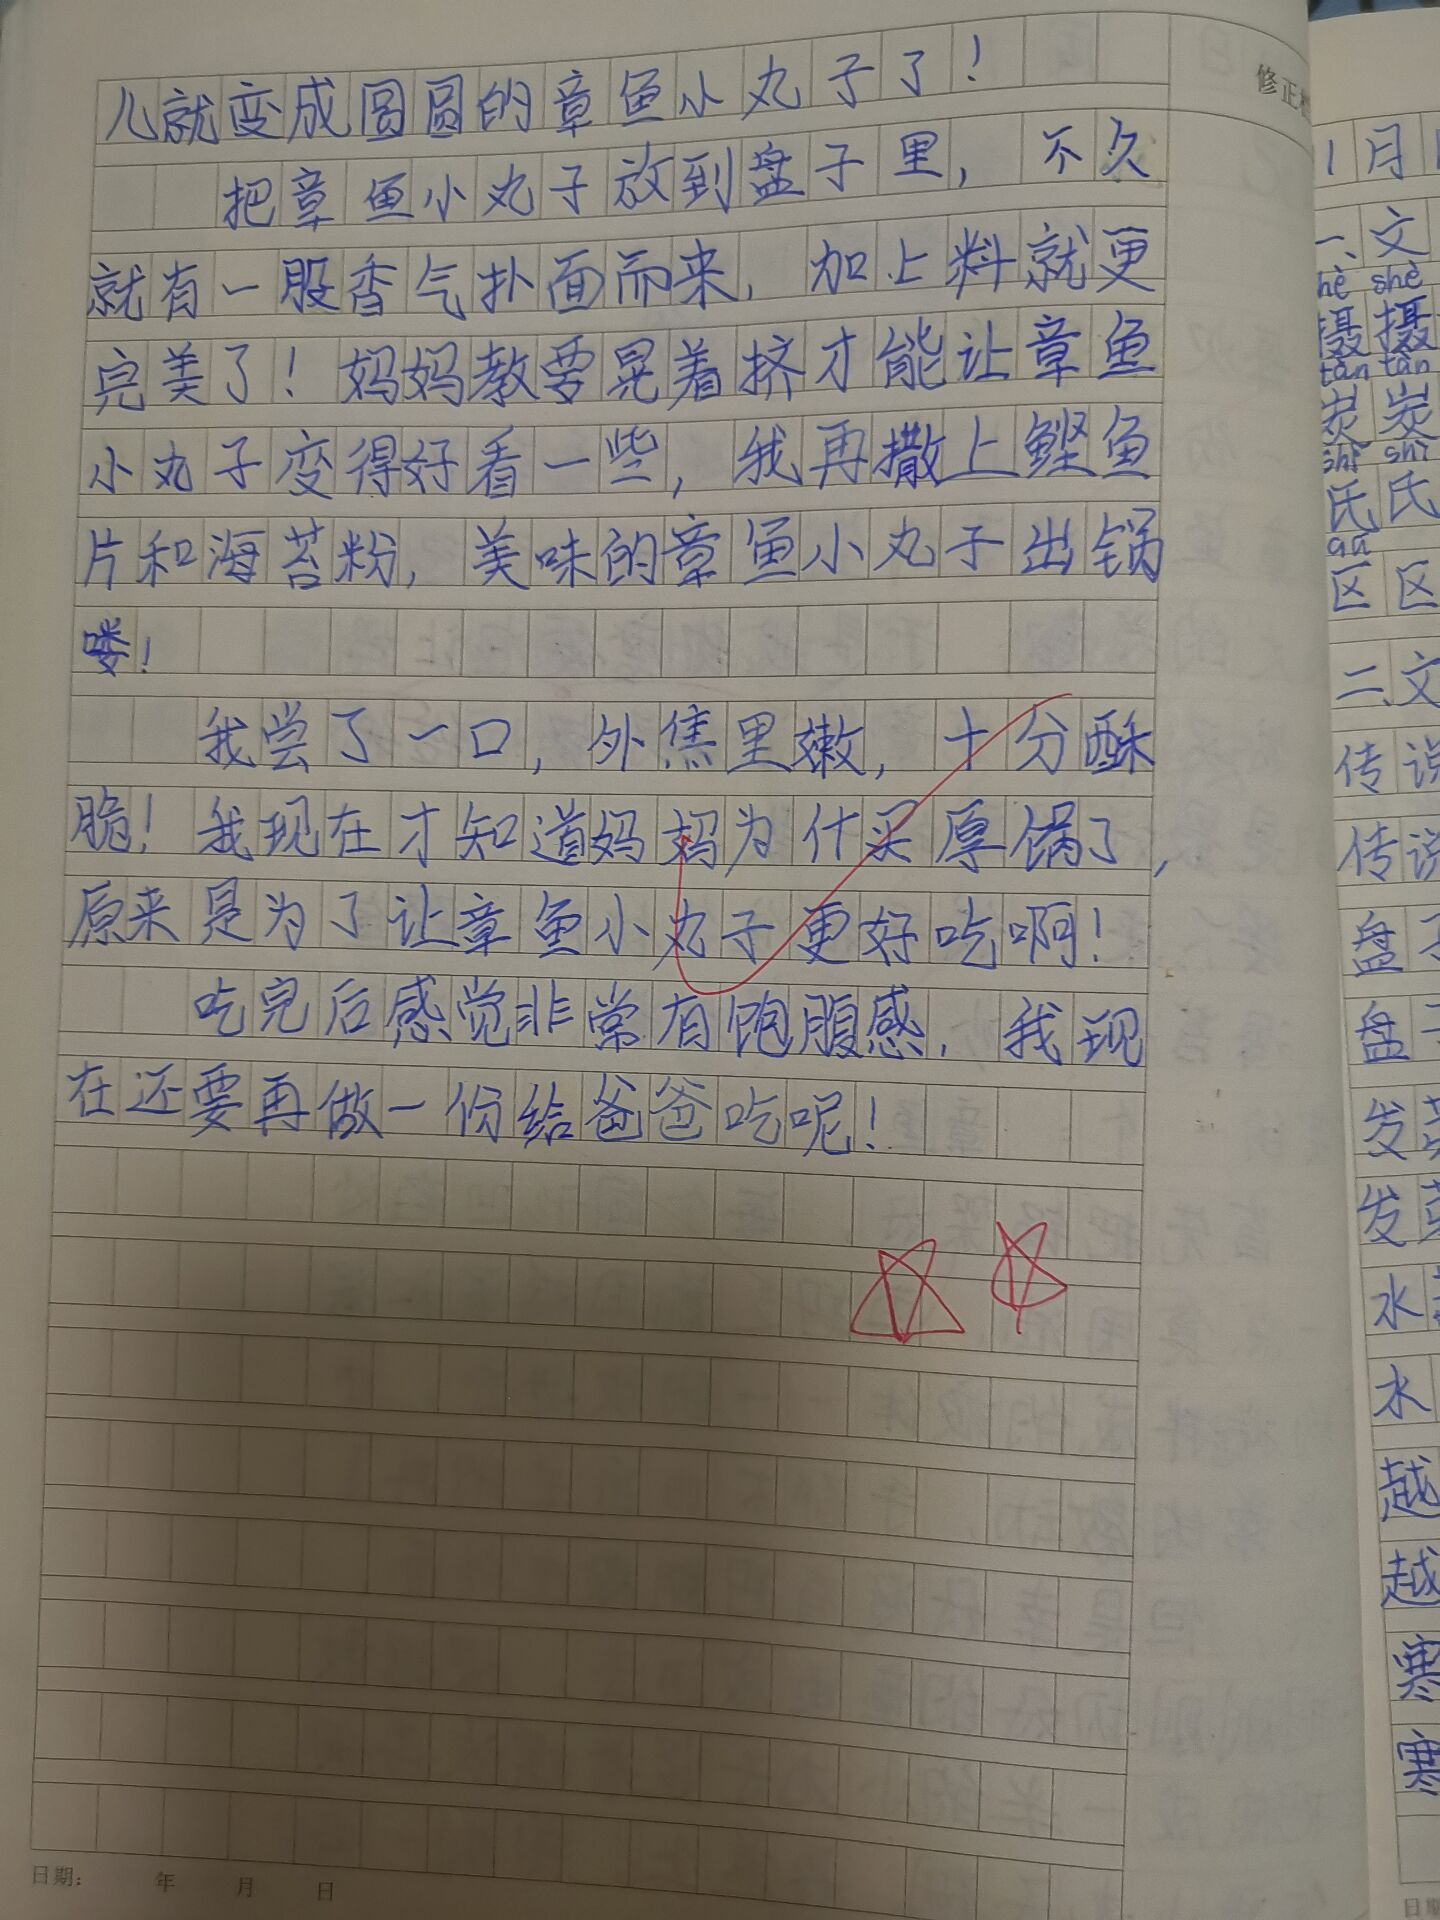 修正
儿就变成圆圆的章鱼小丸子了！
把章鱼小丸子放到盘子里，不久
就有一股香气扑面而来，加上料就更
完美了！妈妈教要晃着挤才能让章鱼
小丸子变得好看一些，我再撒上鲣鱼
片和海苔粉，美味的章鱼小丸子出锅
喽！
我尝了一口，外焦里嫩，十分酥
脆！我现在才知道妈妈为什买厚锅了，
原来是为了让章鱼小丸子更好吃啊！
吃完后感觉非常有饱腹感，我现
在还要再做一份给爸爸吃呢！
日期： 年 月 日
1月
一、文
shè
摄摄
tàn tàn
炭炭
shì shì
氏氏
区区
二、文
传说
传说
盘子
盘子
发
发
水
水
越
越
寒
寒
日期